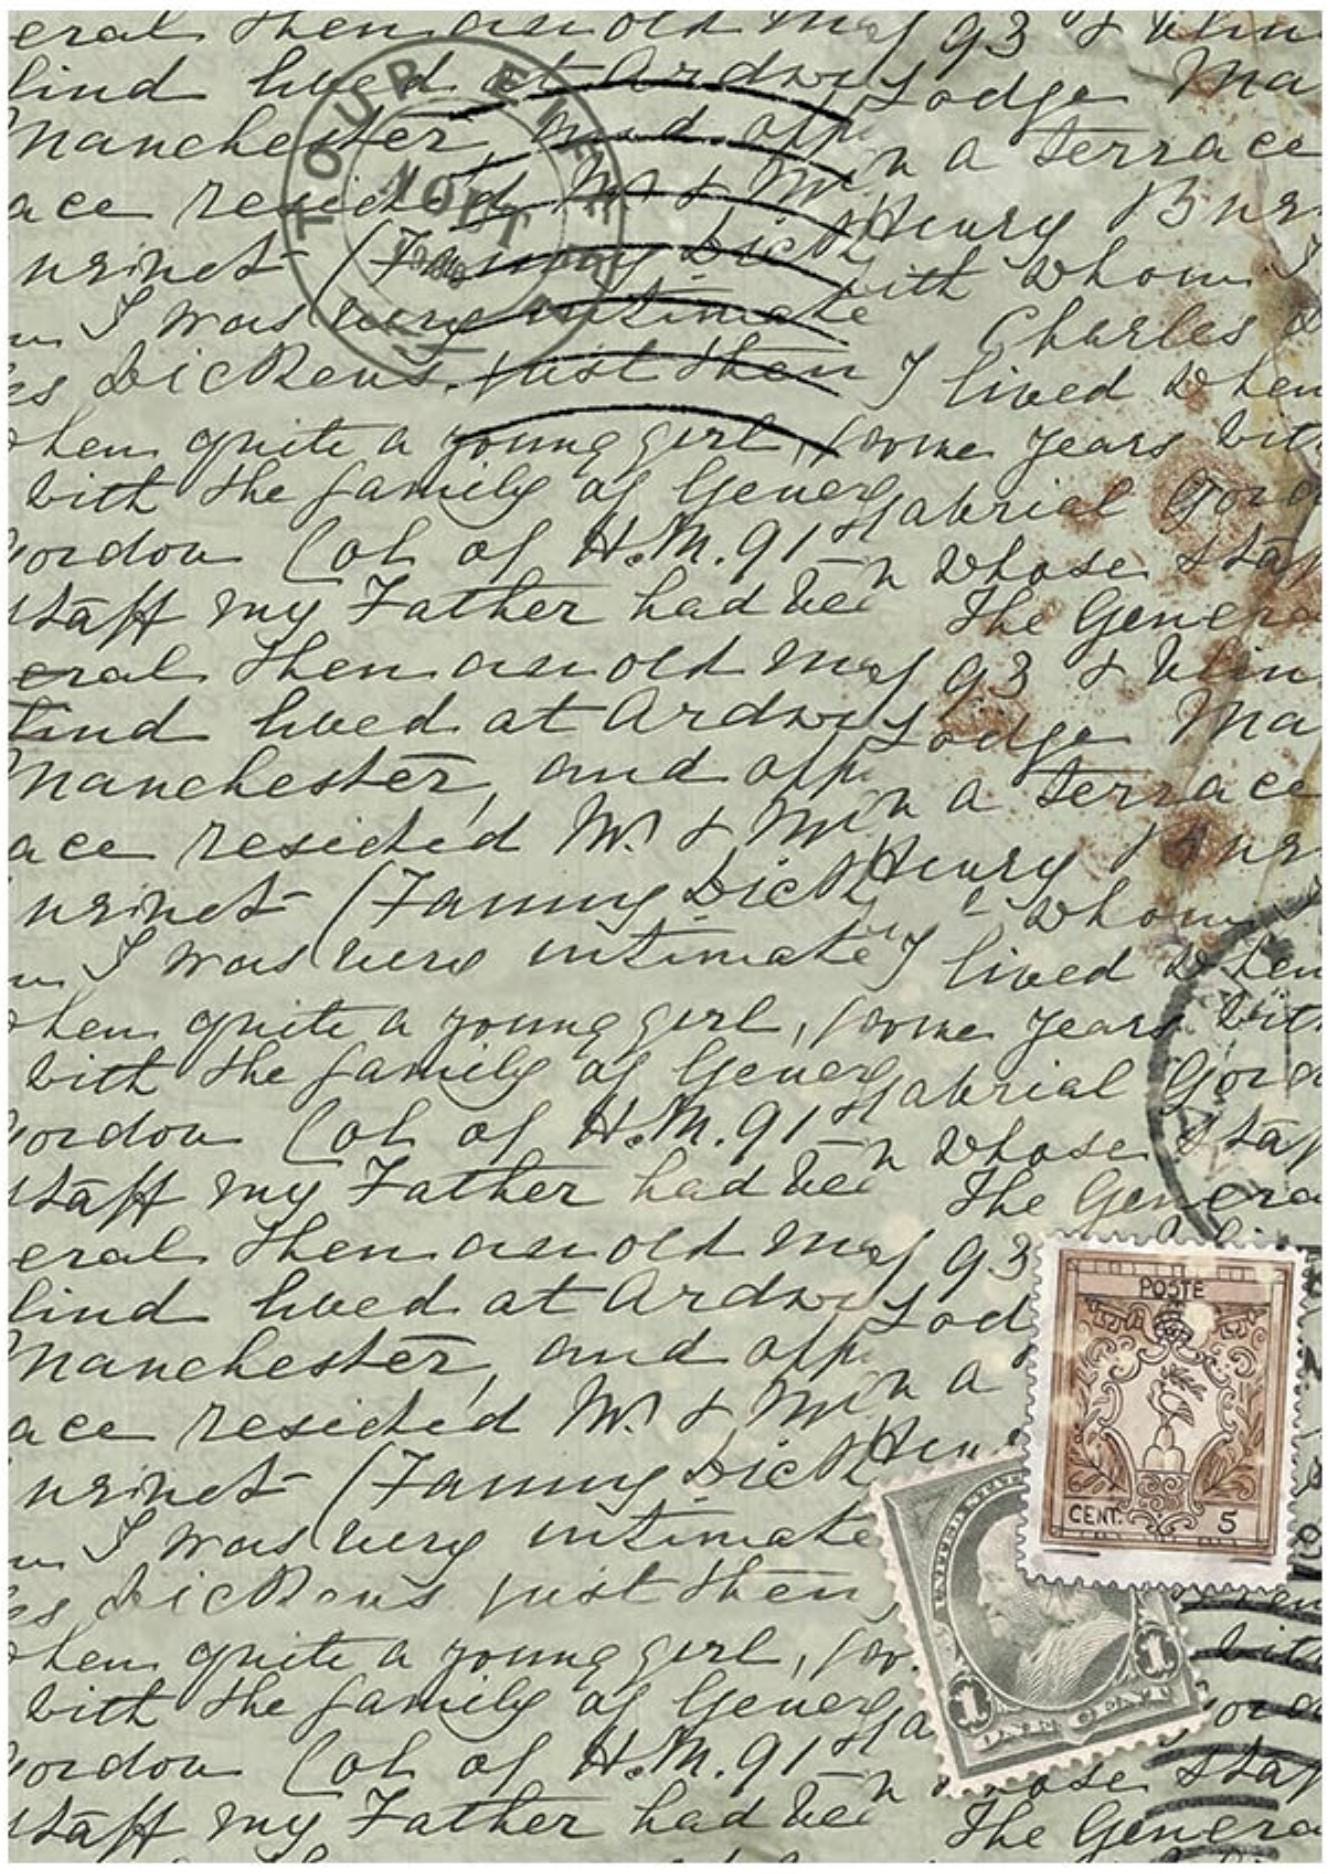 eral then an old man of 93 & blin
lind lived at Ardwi Lodge Ma
Manchester, and opp n a terrace
ace resided Mr. & Mr Henry Bur
urnet (Fanny Dick with whom I
m I was very intimate Charles D
es Dickens. just then I lived when
when quite a young girl, some years with
with the family of Gener Gabrial Gord
Gordon Col of H.M. 91st n whose staf
staff my Father had bee The Genera
eral then an old man of 93 & blin
lind lived at Ardwi Lodge Ma
Manchester, and opp n a terrace
ace resided Mr. & Mr Henry Bur
urnet (Fanny Dick whom I
m I was very intimate I lived when
when quite a young girl, some years with
with the family of Gener Gabrial Gord
Gordon Col of H.M. 91st n whose staf
staff my Father had bee The Genera
eral then an old man of 93
lind lived at Ardwi Lod
Manchester, and opp n a
ace resided Mr. & Mr Hen
urnet (Fanny Dick
m I was very intimate
es Dickens just then
when quite a young girl, so with
with the family of Gener Ga ord
Gordon Col of H.M. 91st n whose staf
staff my Father had bee The Genera
TOUR EIFFEL
AOUT
POSTE
CENT. 5
UNITED STAT
1 1
ONE CENT